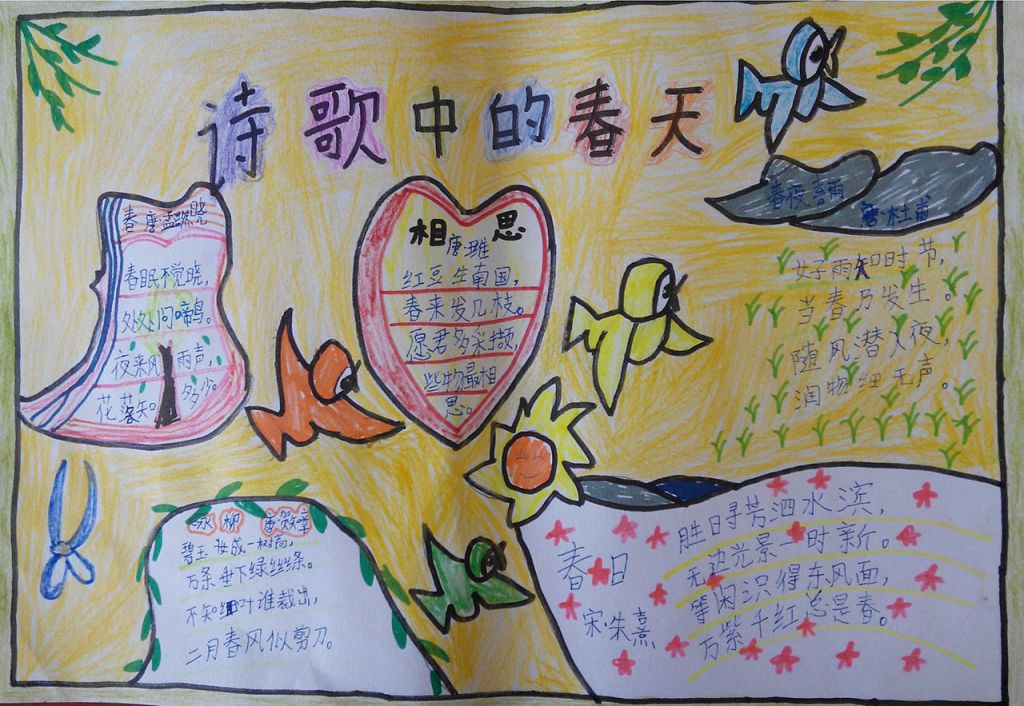 诗歌中的春天
春晓
唐·孟浩然
春眠不觉晓,
处处闻啼鸟。
夜来风雨声,
花落知多少。
相思
唐·王维
红豆生南国,
春来发几枝。
愿君多采撷,
此物最相思。
春夜喜雨
唐·杜甫
好雨知时节,
当春乃发生。
随风潜入夜,
润物细无声。
咏柳 唐贺知章
碧玉妆成一树高,
万条垂下绿丝绦。
不知细叶谁裁出,
二月春风似剪刀。
春日
宋·朱熹
胜日寻芳泗水滨,
无边光景一时新。
等闲识得东风面,
万紫千红总是春。